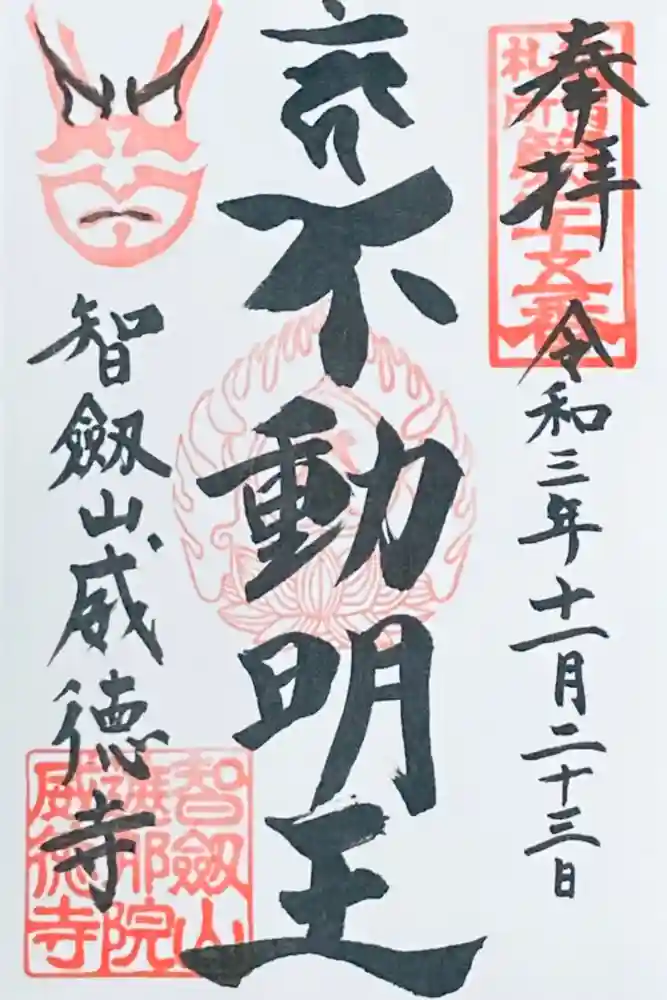 奉拝
令和三年十一月二十三日
不動明王
智劔山威徳寺
智劔山
遮那院
威徳寺